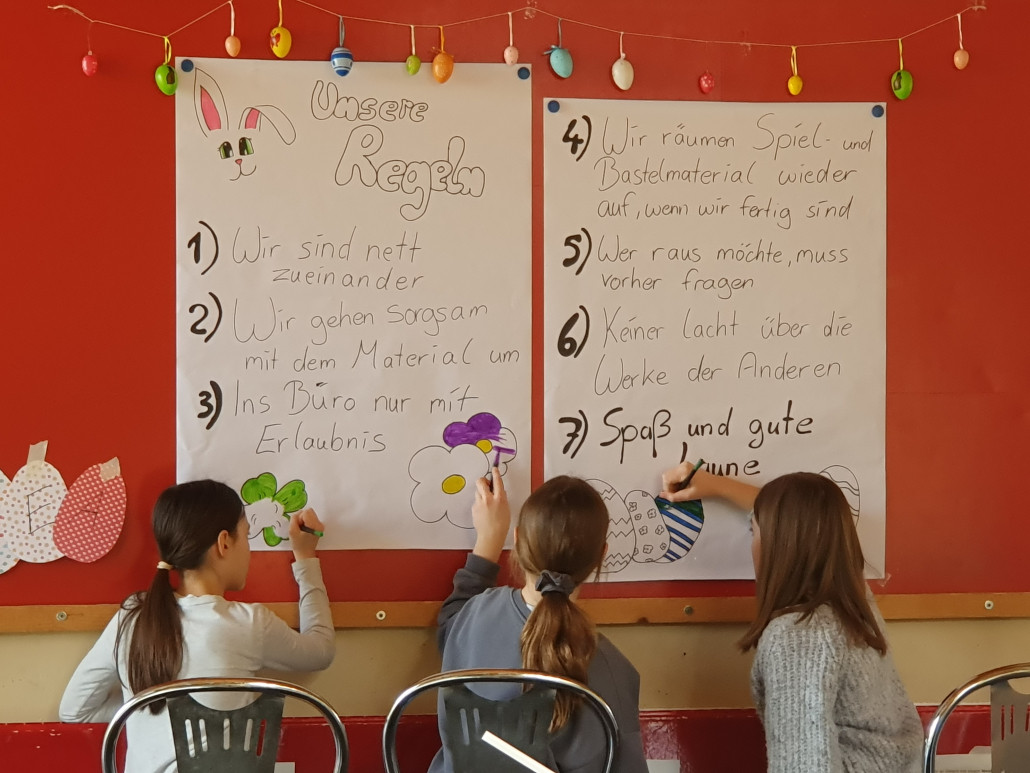 Unsere
Regeln
1) Wir sind nett
zueinander
2) Wir gehen sorgsam
mit dem Material um
3) Ins Büro nur mit
Erlaubnis
4) Wir räumen Spiel- und
Bastelmaterial wieder
auf, wenn wir fertig sind
5) Wer raus möchte, muss
vorher fragen
6) Keiner lacht über die
Werke der Anderen
7) Spaß und gute
E